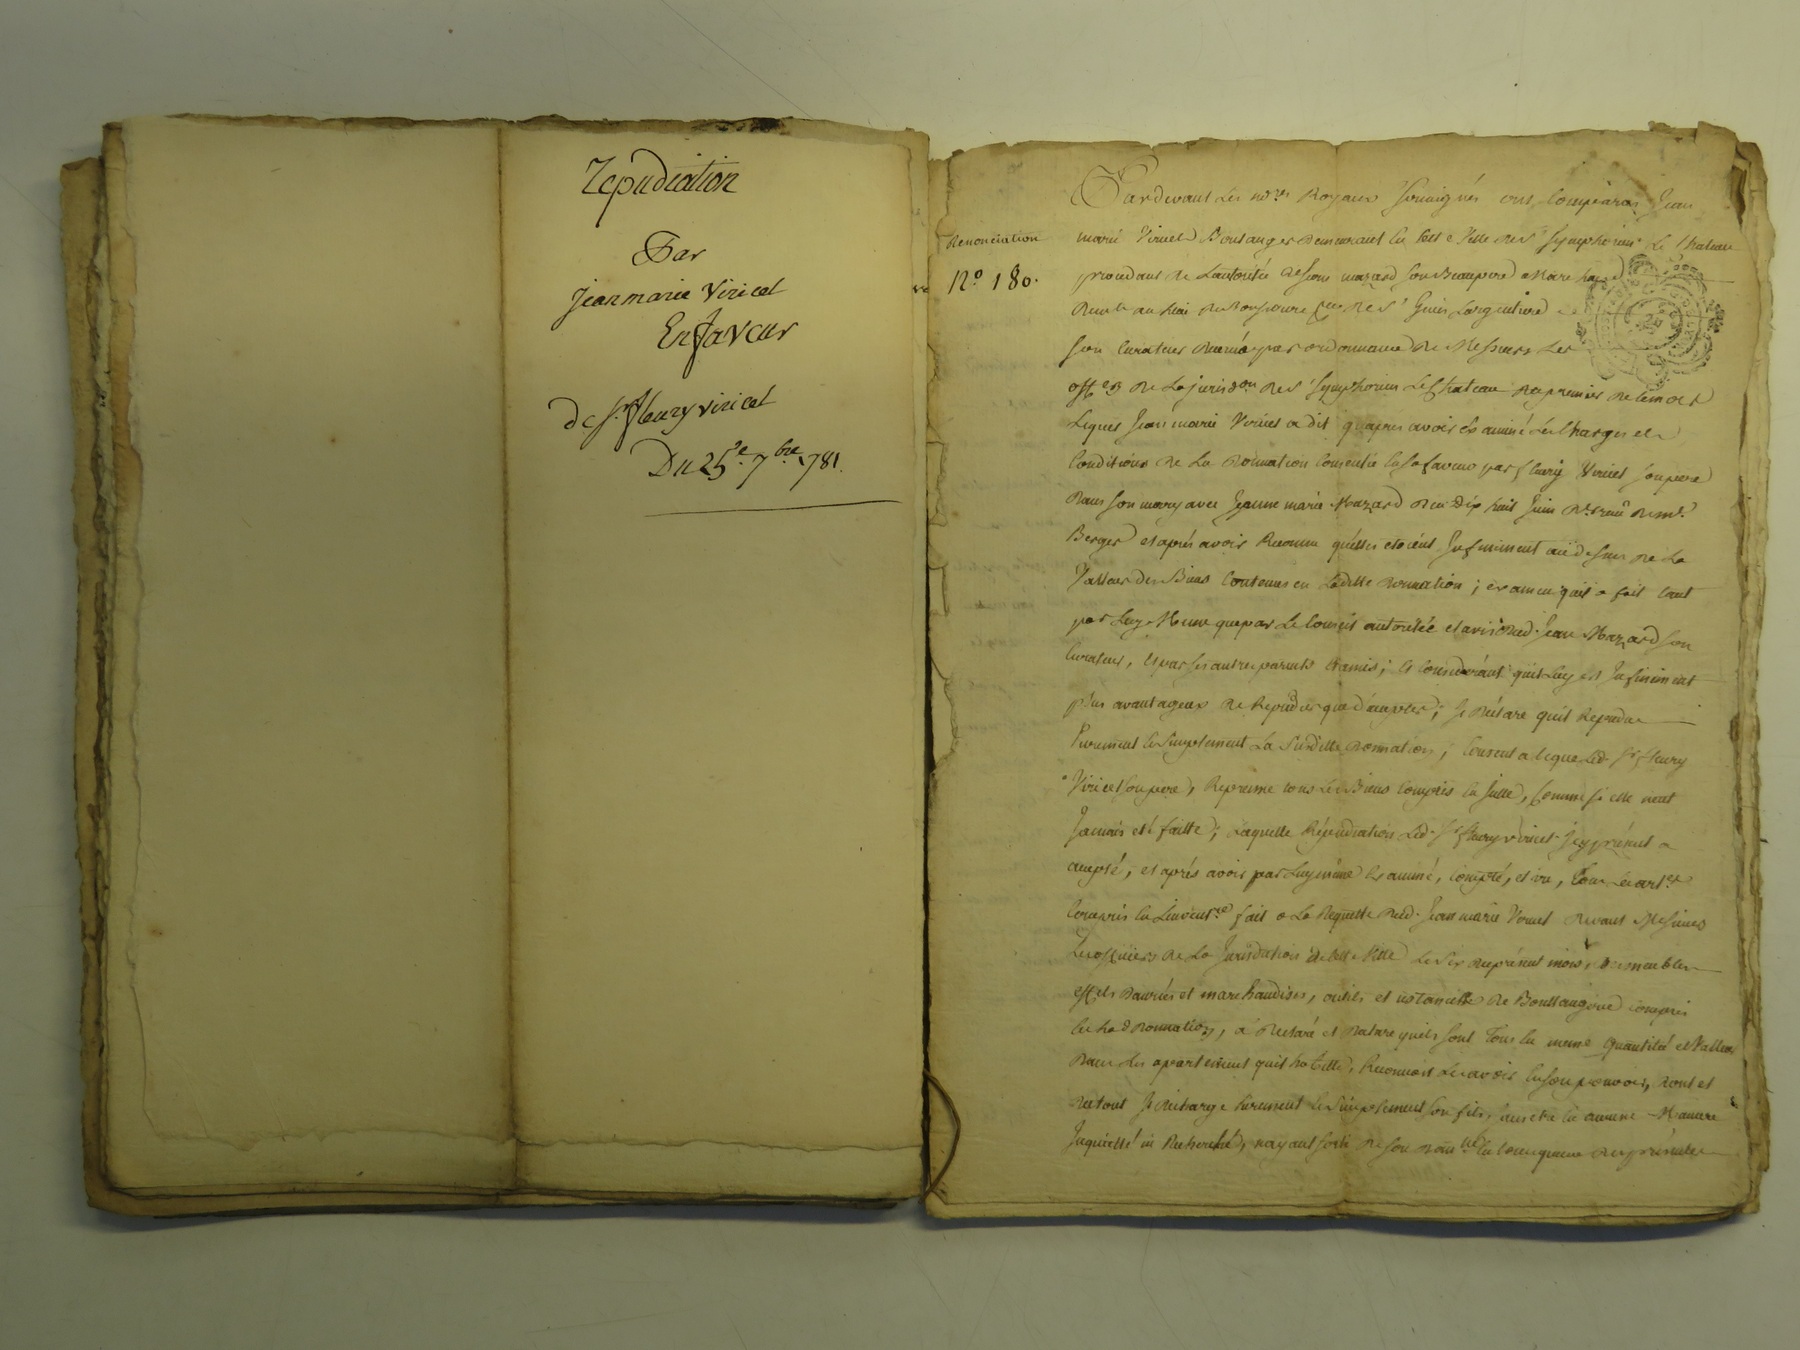 Repudiation
Par
Jean marie Viricel
En faveur
De Sr. fleury viricel
Du 25e. 7bre. 781.
Renonciation
No. 180.
Pardevant Les nores Royaux soussignés ont comparus Jean
marie Viricel Boulanger demeurant en cette Ville de St Symphorien Le Chateau
procedant de L'autorité de Jean mazard son Beaupere
de St Genis Largentiere
son Curateur nommé par ordonnance de Messieurs Les
offers de La jurison de St Symphorien Le Chateau du premier de ce mois
Lequel Jean marie Viricel a dit qu'apres avoir éxaminé Les Charges et
Conditions de La Donnation Consentie en sa faveur par fleury Viricel son pere
Dans son mariage avec Jeanne marie Mazard du dix huit Juin Me.
Berger et aprés avoir Reconnu qu'elles etoient Infiniment audessus de La
Valleur des Biens Contenus en Laditte Donnation; examen qu'il a fait tant
par Luy Meme que par Le Conseil autorité et avis dud. Jean Mazard son
Curateur, et par ses autres parents et amis; et Considerant qu'il Luy est Infiniment
plus avantageux de Repudier que d'accepter; Il Déclare qu'il Repudie
Purement et Simplement La Susditte Donnation; Consent a ce que Led. Sr. fleury
Viricel son pere, Reprenne tous Les Biens Compris en Icelle, Comme si elle n'eut
Jamais eté faitte; Laquelle Répudiation Led. Sr. fleury viricel Icy présent a
accepté, et aprés avoir par Luy méme éxaminé, compté, et vu, tous Les artes
Compris en L'inventre fait a La Requette dud. Jean marie Viricel devant Messieurs
Les officiers de La Jurisdiction de cette Ville Le Six du présent mois, Les meubles
effets Danrées et marchandises, outils et ustancille de Boullangerie compris
en La de Donnation, a Declaré et Declare qu'ils sont Tous en meme Quantité et Valleur
Dans Les apartement qu'il habitte, Reconnoit Les avoir en son pouvoir, Dont et
Du tout Il Decharge Purement et Simplement son fils, sans etre en aucune Maniere
Inquietté ni Recherché, en Consequence des présentes